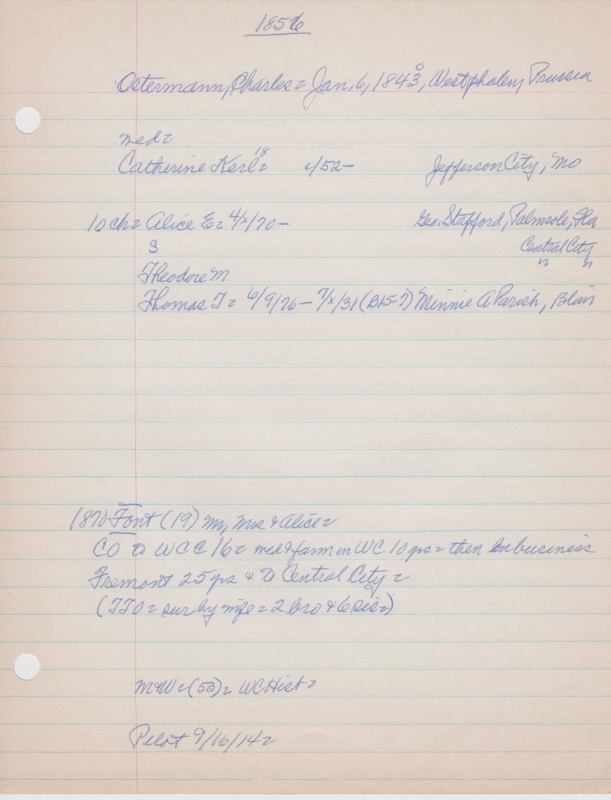 1856
Ostermann, Charles = Jan. 6, 1843, Westphalen, Prussia
0
med =
18
Catherine Kerl = 4/52 - Jefferson City, Mo
10 ch = Alice E = 4/x/70 - Geo. Stafford, Palmsole, Fla
S Central City
Theodore M " "
Thomas J = 6/9/76 - 7/x/31 (B15-7) Minnie A Parish, Blair
1870 Font (19) Mr, Mrs & Alice =
CO to WCC 16 = med & farm in WC 10 yrs = then in business
Fremont 25 yrs & to Central City =
(TJO = sur by wife = 2 bro & 6 sis =)
M&W = (53) = WC Hist =
Pilot 9/16/14 =